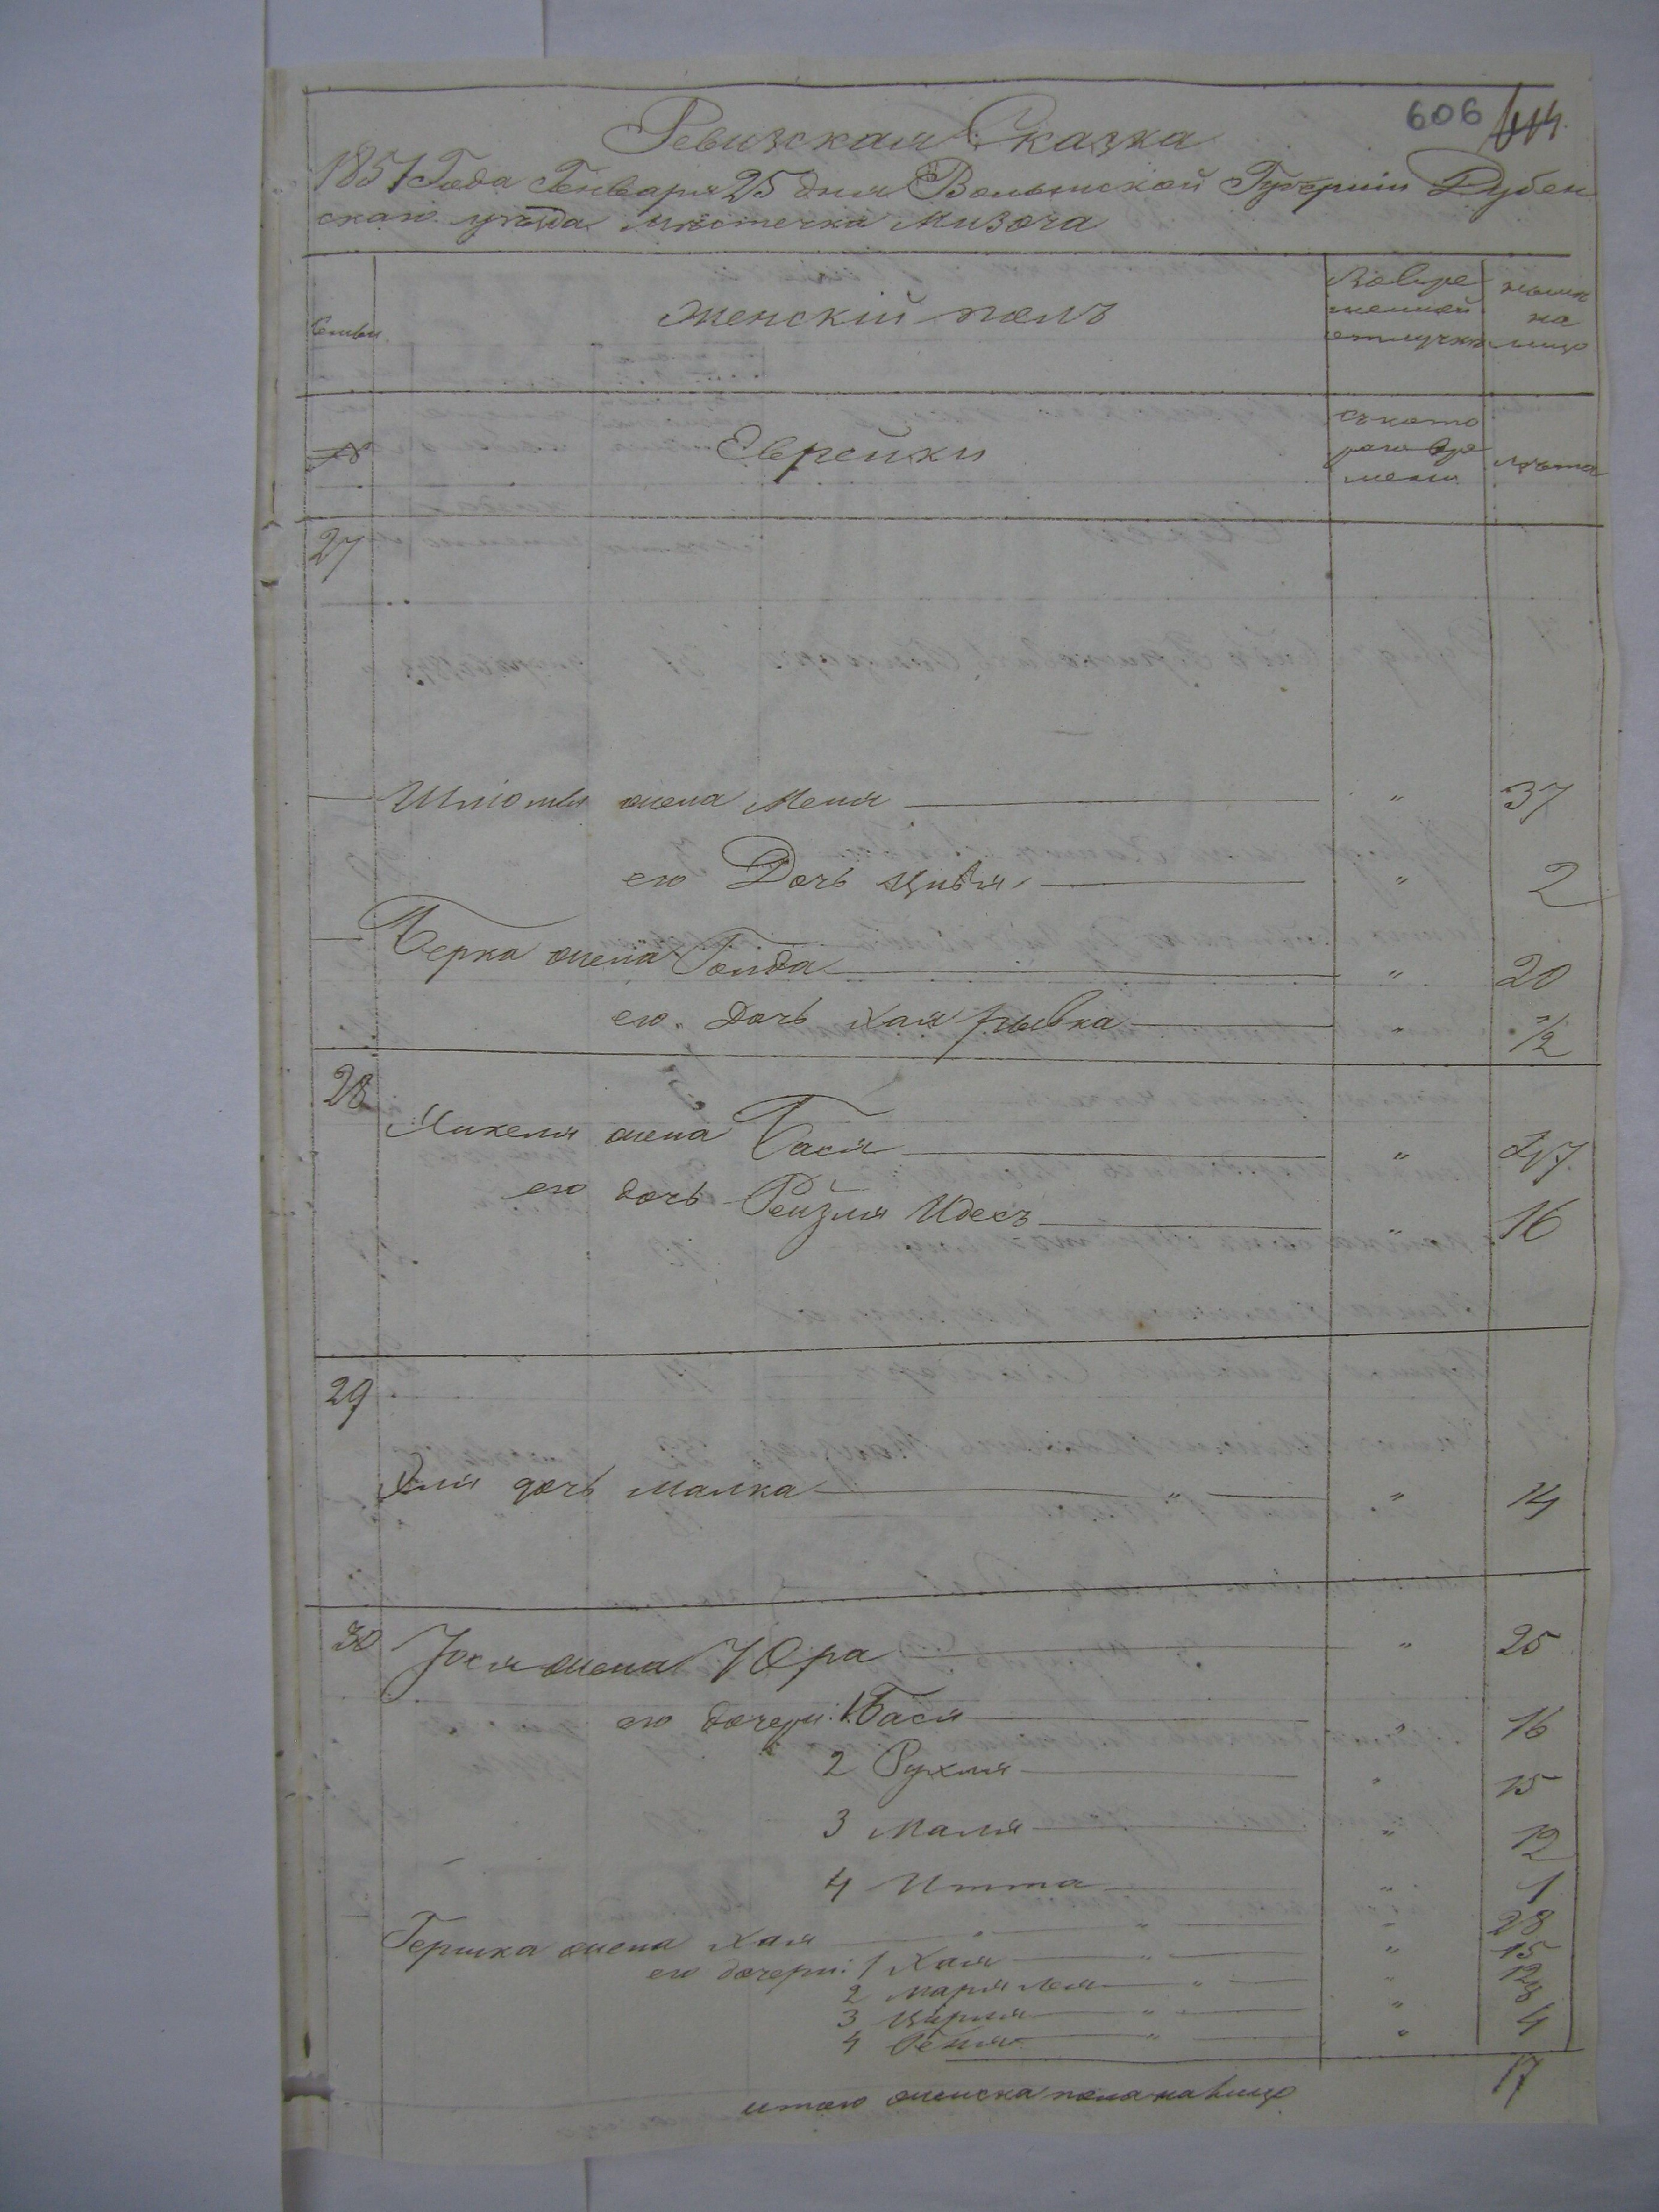 606
Ревизская Сказка
1851 Года Генваря 25 дня Волынской Губернии Дубен
скаго уѣзда мѣстечка Мизоча
Семьи
Женскій полъ
Во вре
менной
отлучкѣ
на
лицо
№
Еврейки
съ кото
раго вре
мени
лѣта
27
жена Меня " 37
его Дочь Цивья " 2
Берка жена Голда " 20
его дочь Хая Рывка " 1/2
28
жена Бася " 47
его дочь Рейзля Идесъ " 16
29
дочь Малка " " 14
30
жена Юра " 25
его дочери: 1 Бася " 16
2 Рухля " 15
3 Маля " 12
4 Итта " 1
Гершка жена Хая " " 28
его дочери: 1 Хая " " 15
2 Марья Лея " "
3 Цирля " "
4 " " 4
итого женска пола на лицо 17